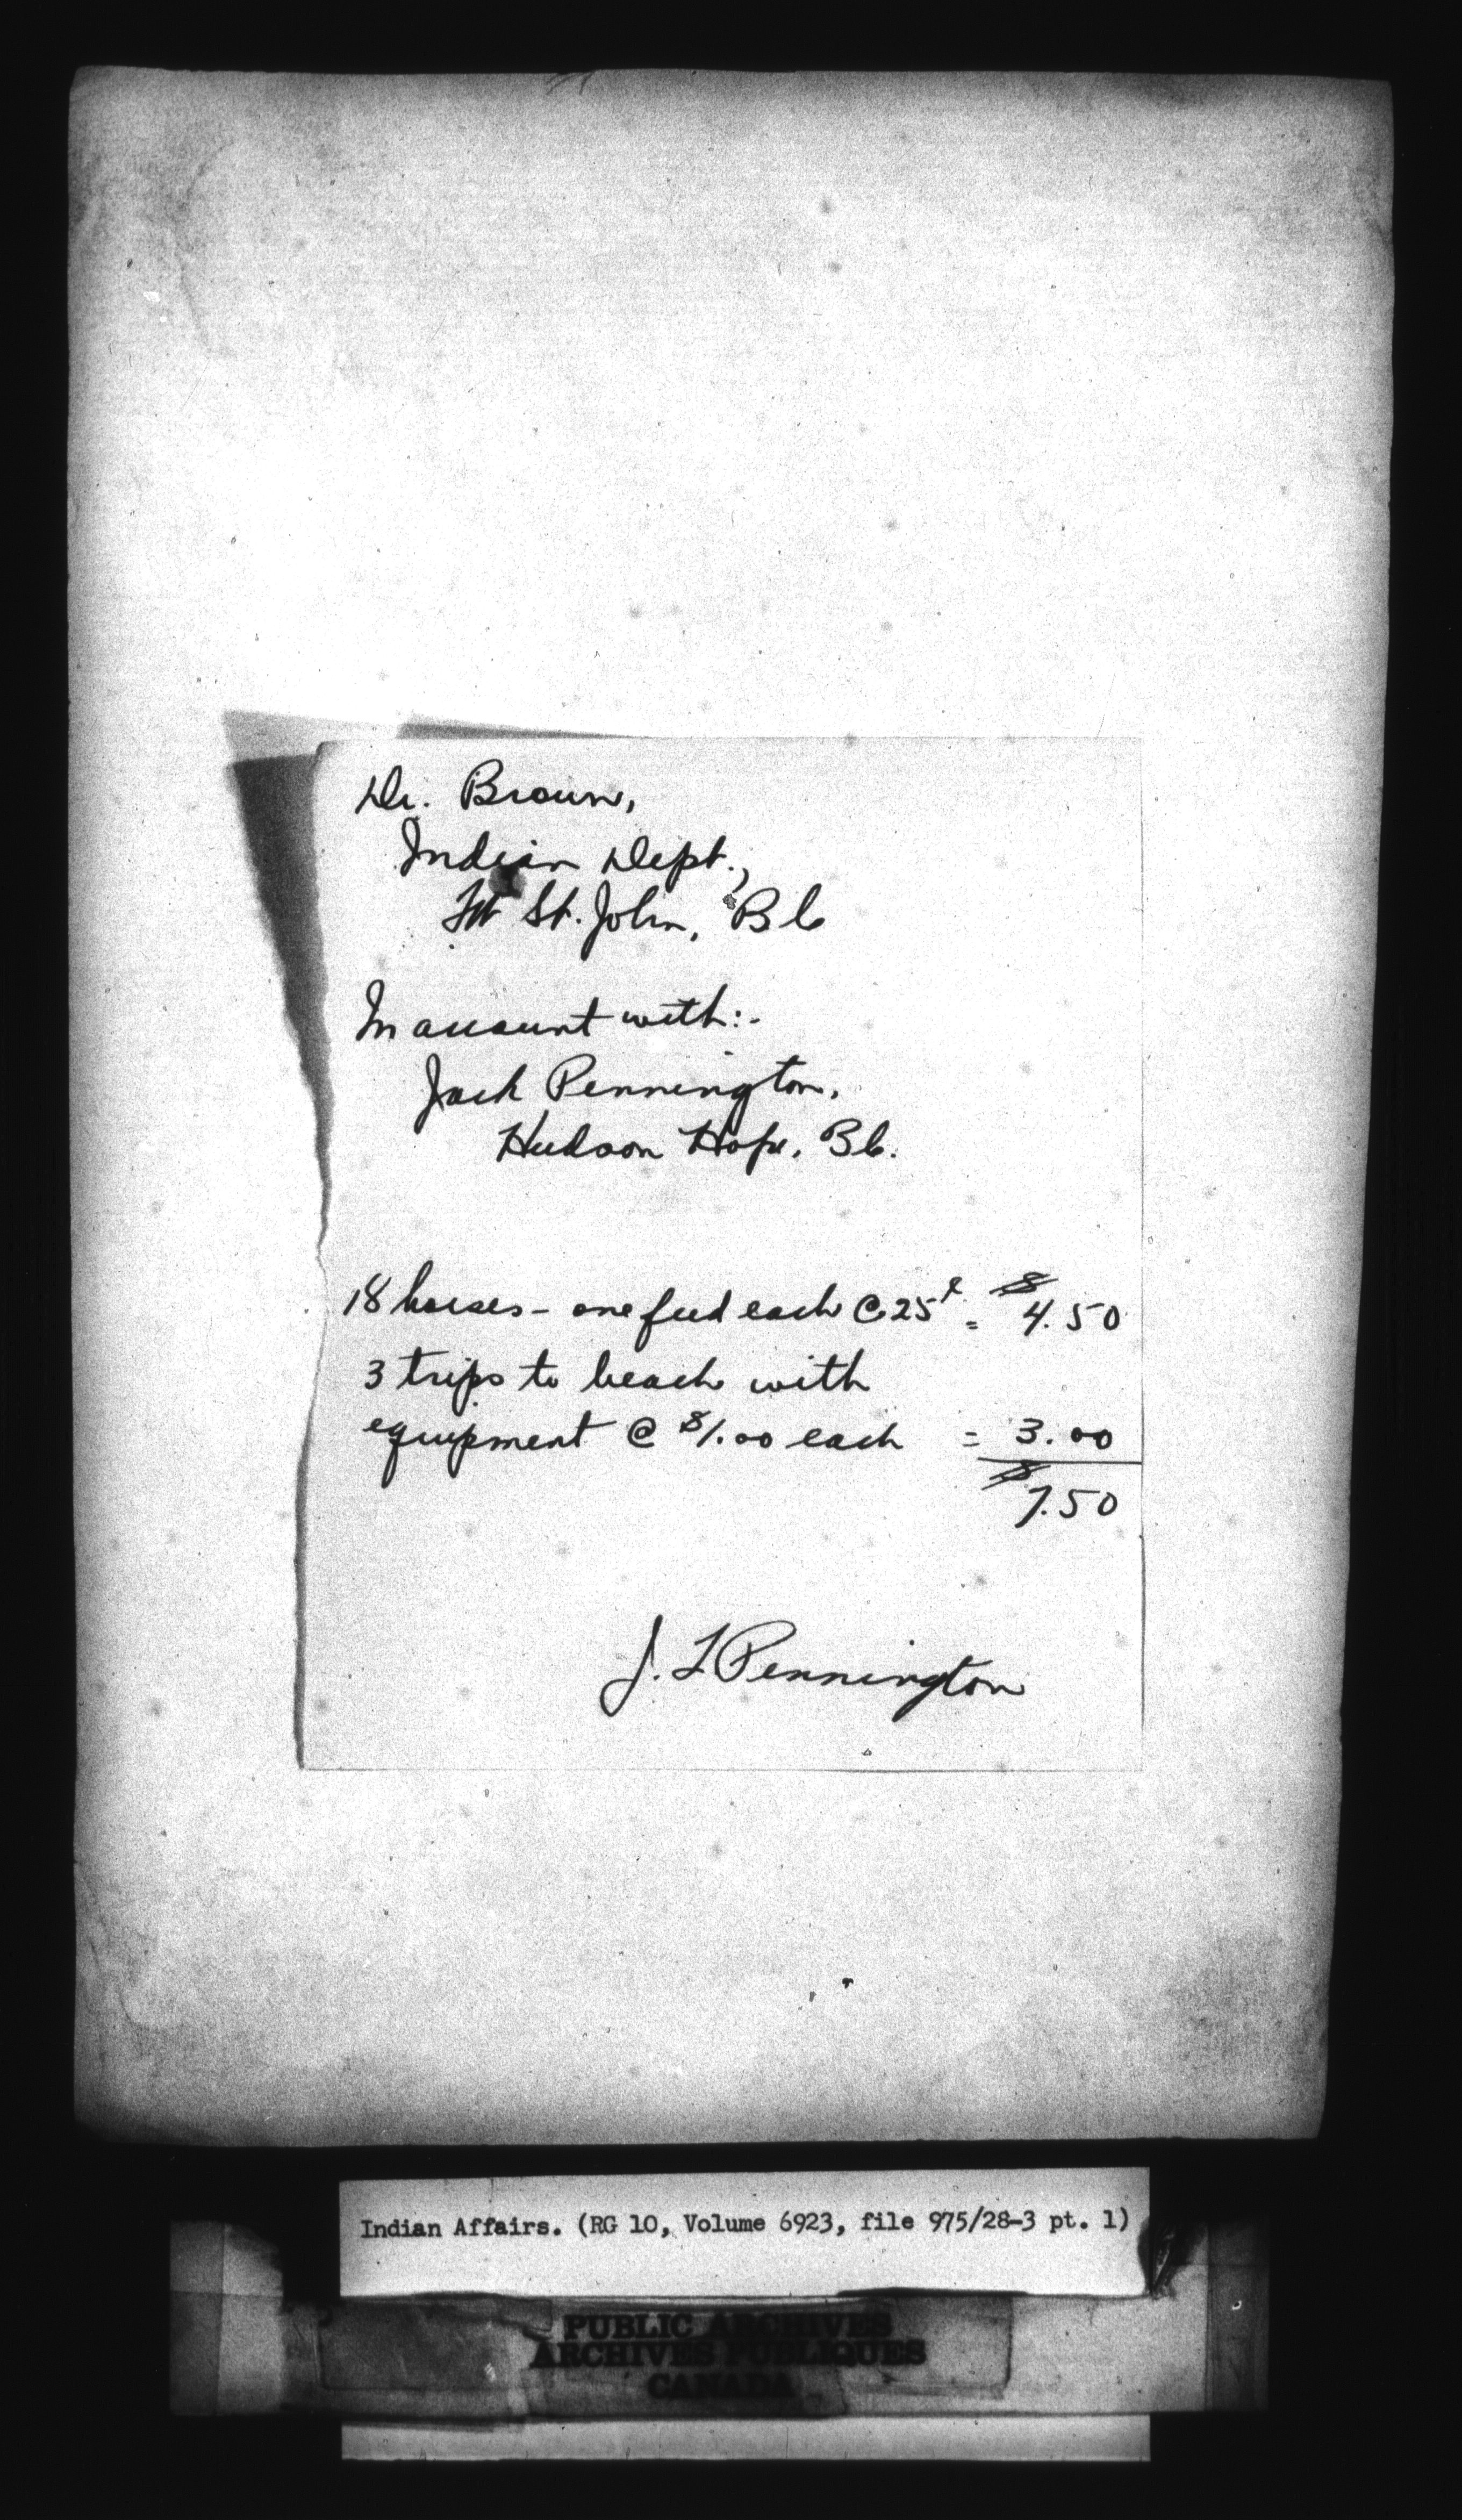 Dr. Brown,
Indian Dept.,
Ft St. John, B C
In account with:-
Jack Pennington,
Hudson Hope, B C.
18 horses - one feed each @ 25¢ = $4.50
3 trips to beach with
equipment @ $1.00 each = 3.00
$7.50
J. L Pennington
Indian Affairs. (RG 10, Volume 6923, file 975/28-3 pt. 1)
PUBLIC ARCHIVES
ARCHIVES PUBLIQUES
CANADA